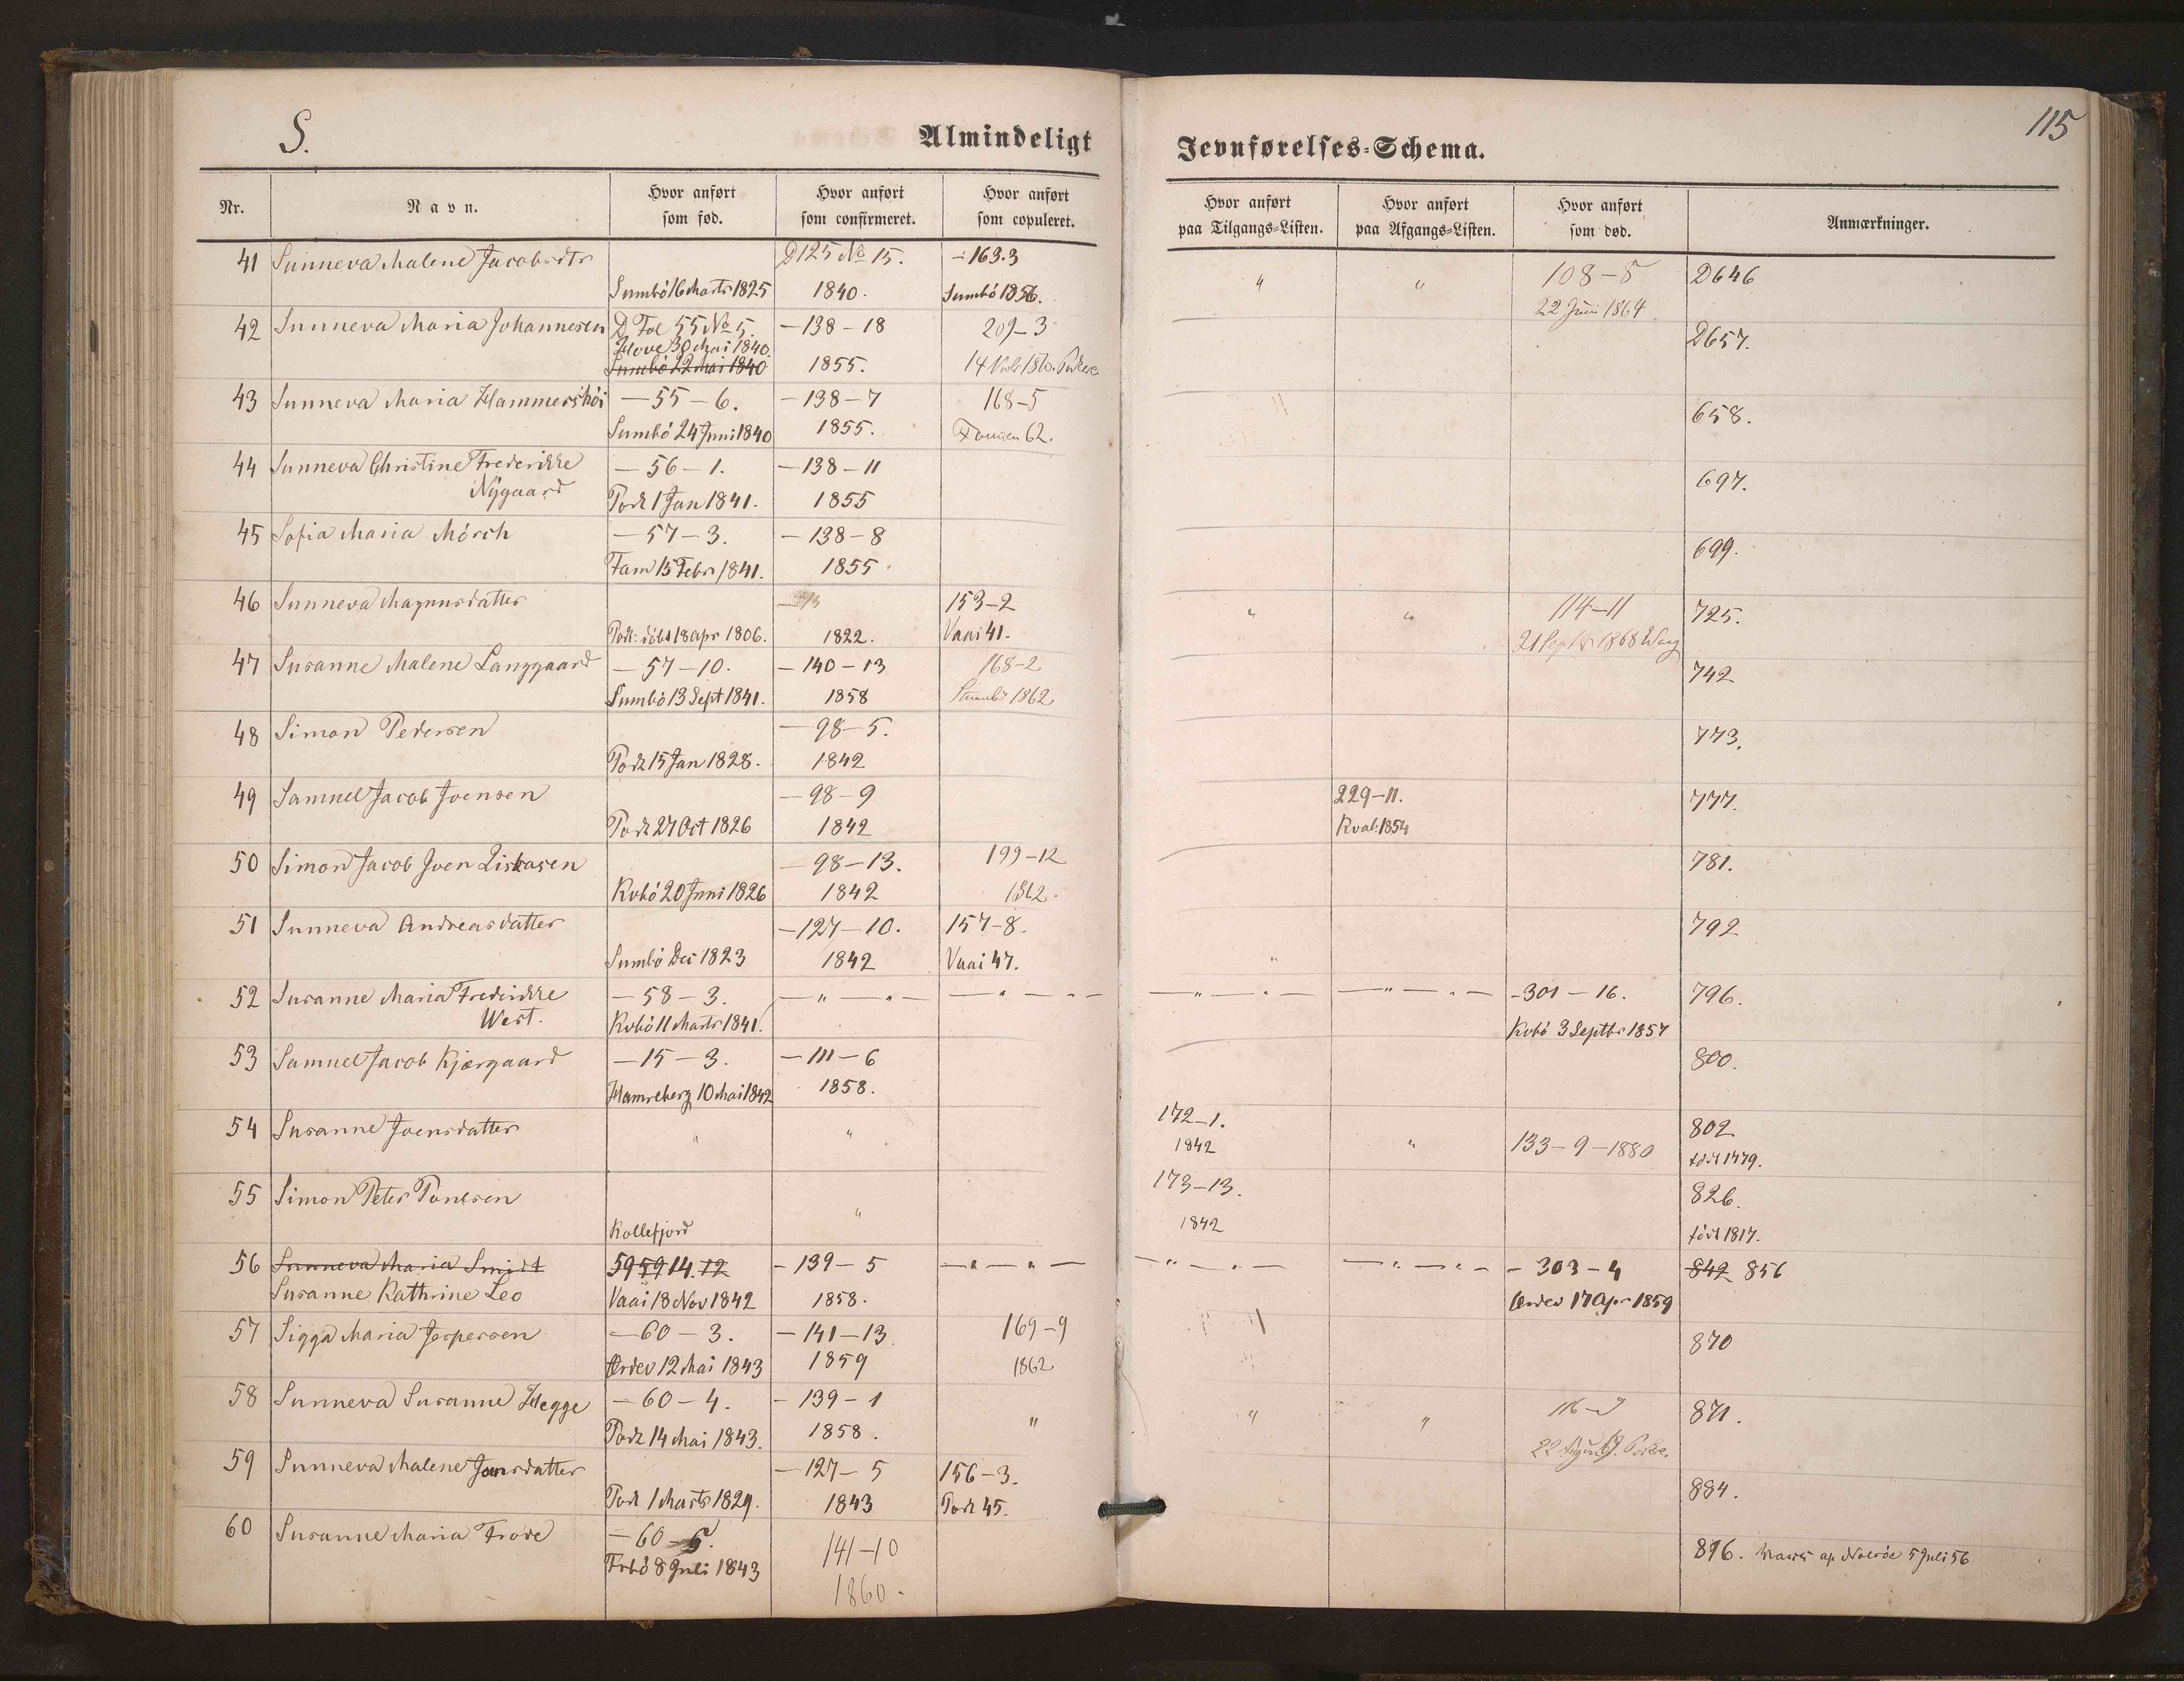 S.
Almindeligt
Jevnførelses-Schema.
115
Nr.
Navn.
Hvor anført som fød.
Hvor anført som confirmeret.
Hvor anført som copuleret.
Hvor anført paa Tilgangs-Listen.
Hvor anført paa Afgangs-Listen.
Hvor anført som død.
Anmærkninger.
41 Sunneva Malene Jacobsdtr D125 No 15. 163.3 " " 108-5 D646
Sumbö 16 Marts 1825 1840. Sumbö 1856. 22 Juni 1864
42 Sunneva Maria Johannesen D. Fol 55 No 5. -138-18 209-3 D657.
Hove 30 Mai 1840.
Sumbö 22 Mai 1840 1855. 14 1860.
43 Sunneva Maria Hammershöi -55-6. -138-7 168-5 658.
Sumbö 24 Juni 1840 1855. 62.
44 Sunneva Christine Frederikke -56-1. -138-11 697.
Nÿgaard Pork 1 Jan 1841. 1855
45 Sofia Maria Mörch -57-3. -138-8 699.
Fam 15 Febr 1841. 1855
46 Sunneva Magnusdatter 153-2 " " 114-11 725.
Pork: döbt 18 Apr 1806. 1822. Vaai 41. 21 Septbr 1868 Waag
47 Susanne Malene Langgaard -57-10. -140-13 168-2 742
Sumbö 13 Sept 1841. 1858 Sumbö 1862
48 Simon Pedersen -98-5. 773.
Pork 15 Jan 1828. 1842
49 Samuel Jacob Joensen -98-9 229-11. 777.
Pork 27 Oct 1826 1842 Kvalb 1854
50 Simon Jacob Joen Liskasen -98-13. 199-12 781.
Kvbö 20 Juni 1826 1842 1862.
51 Sunneva Andreasdatter -127-10. 157-8. 792
Sumbö Dec 1823 1842 Vaai 47.
52 Susanne Maria Frederikke -58-3. -"-"- -"-"- -"-"- -"-"- -301-16. 796.
West. Kvbö 11 Marts 1841. Kvbö 3 Septbr 1857
53 Samuel Jacob Kjærgaard -15-3. -111-6 800.
Hamreberg 10 Mai 1842 1858.
54 Susanne Joensdatter " " 172-1. " 133-9-1880 802
1842 född 1779.
55 Simon Peter Poulsen " 173-13. 826.
Kollefjord 1842 född 1817.
56 Sunneva Maria Smidt 59 59 14. 12 -139-5 -"-"- -"-"- -"-"- -303-4 842 856
Susanne Kathrine Leo Vaai 18 Nov 1842 1858. Ördev 17 Apr 1859
57 Sigga Maria Jespersen -60-3. -141-13 169-9 870
Ördev 12 Mai 1843 1859 1862
58 Sunneva Susanne Hegge -60-4. -139-1 " " " 871.
Pork 14 Mai 1843. 1858. 22 August
59 Sunneva Malene Joensdatter -127-5 156-3. 884.
Pork 1 Marts 1829. 1843 Pork 45.
60 Susanne Maria Frode -60-5. 141-10 896. Nolsöe 5 Juli 56
Frbö 8 Juli 1843 1860.